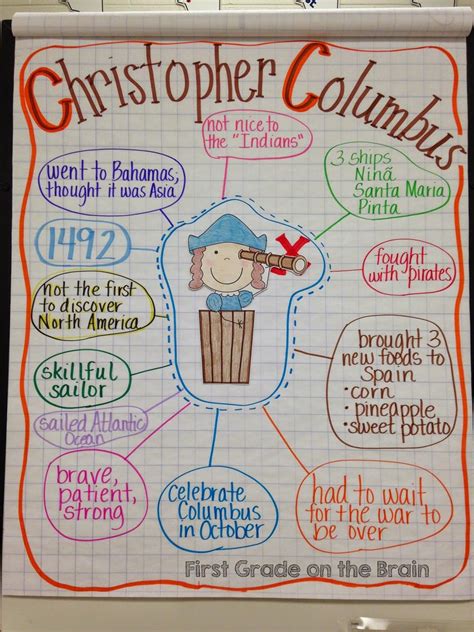 Christopher Columbus
not nice to
the "Indians"
went to Bahamas;
thought it was Asia
3 ships
Niñã
Santa Maria
Pinta
1492
fought
with pirates
not the first
to discover
North America
brought 3
new foods to
Spain
• corn
• pineapple
• sweet potato
skillful
sailor
sailed Atlantic
Ocean
brave,
patient,
strong
celebrate
Columbus
in October
had to wait
for the war to
be over
First Grade on the Brain